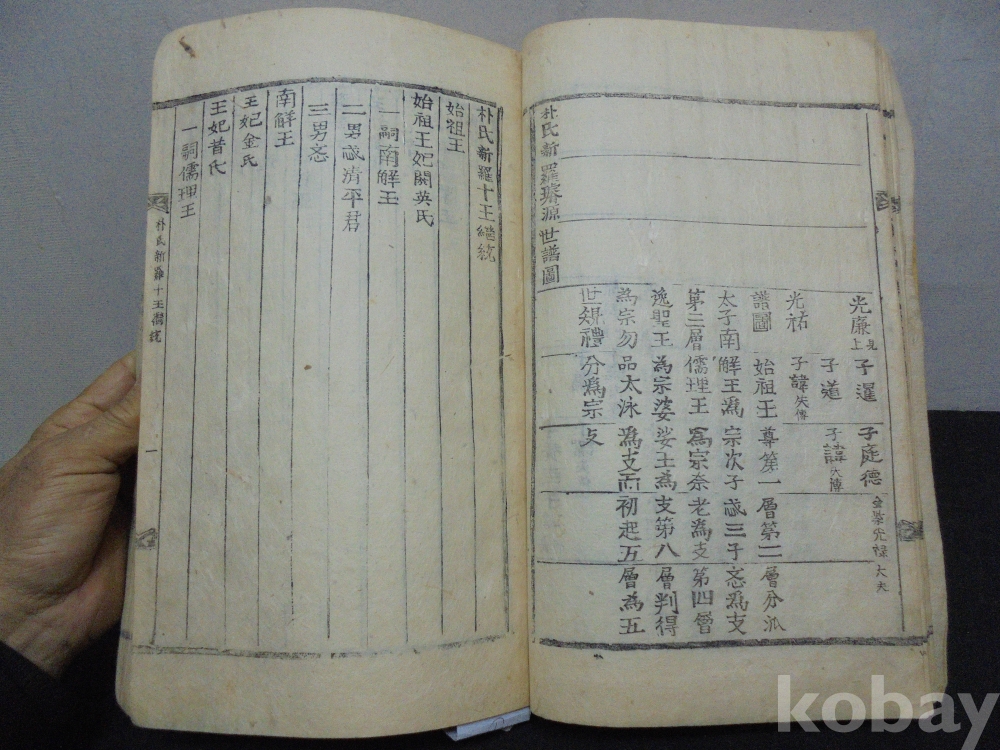 光廉見上 子暹 子庭德 金紫光祿大夫
子道 子諱失傳
光祐 子諱失傳
譜圖 始祖王尊第一層第二層分派
太子南解王爲宗次子忒三子忞爲支
第三層儒理王爲宗奈老爲支第四層
逸聖王爲宗婆娑王爲支第八層判得
爲宗勿品太泳爲支而初起五層爲五
世矧禮分爲宗支
朴氏新羅璿源世譜圖
朴氏新羅十王繼統
始祖王
始祖王妃閼英氏
一嗣南解王
二男忒淸平君
三男忞
南解王
王妃金氏
王妃昔氏
一嗣儒理王
朴氏新羅十王繼統 一
kobay